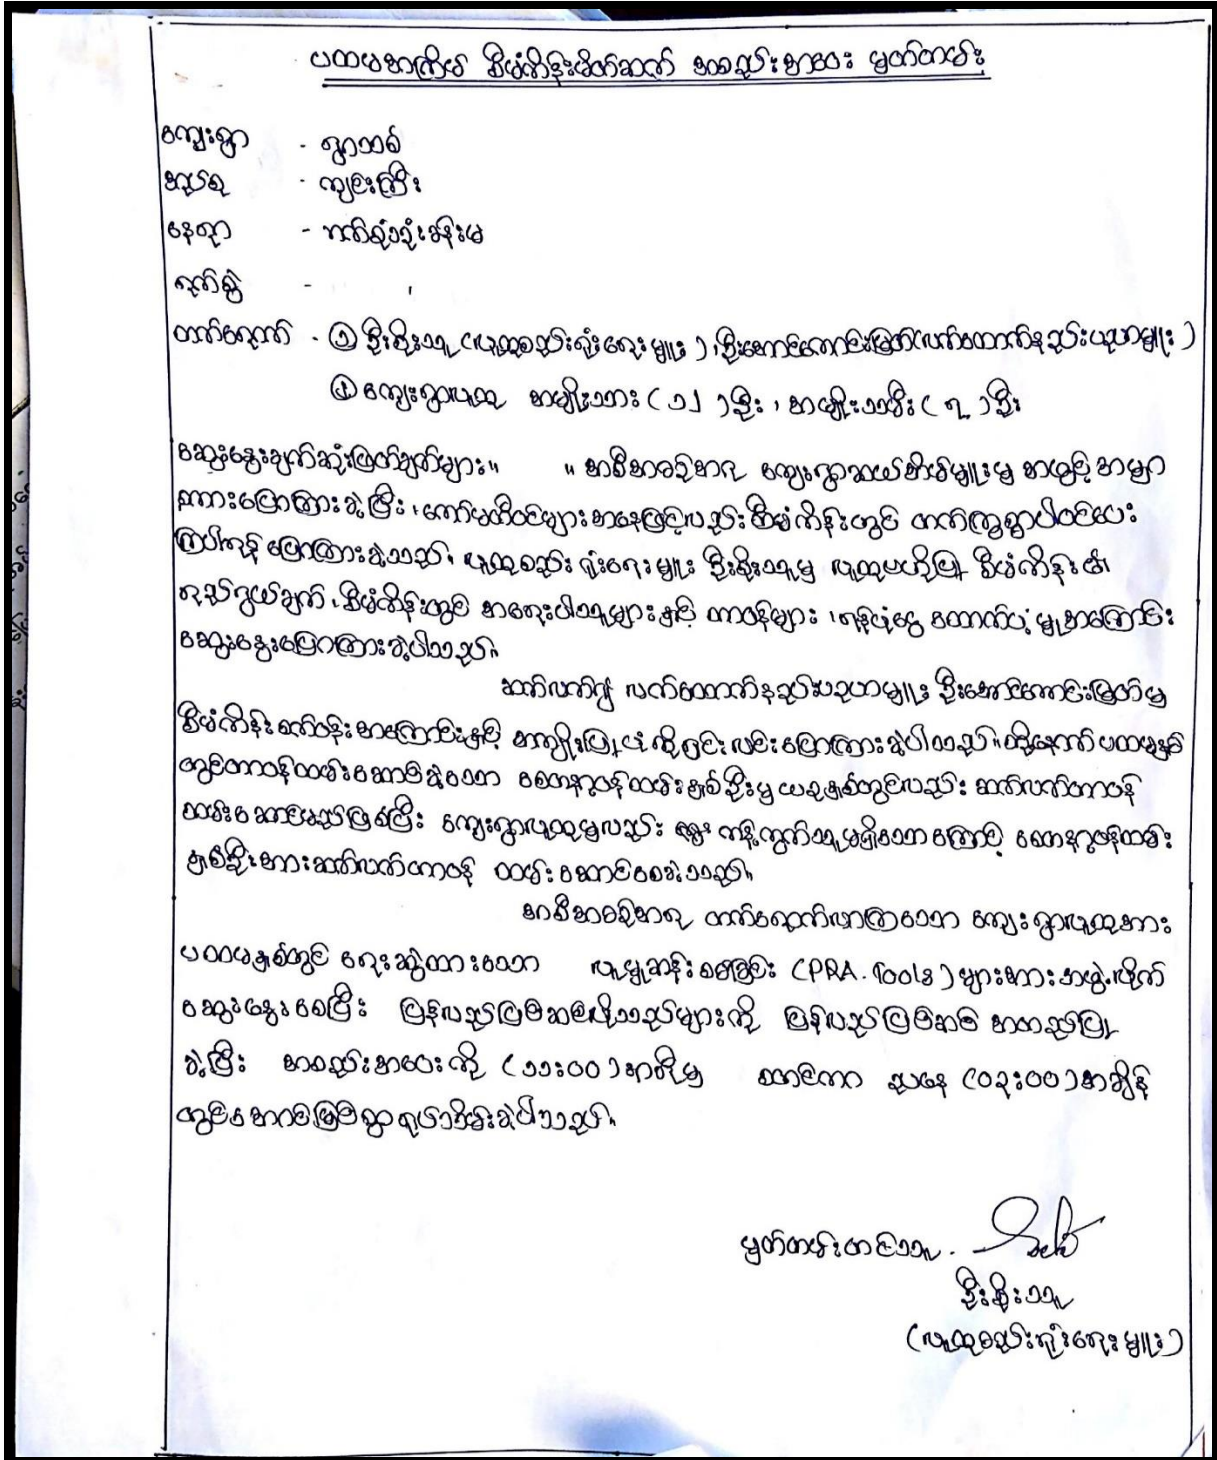 ပထမအကြိမ် စီမံကိန်းမိတ်ဆက် အစည်းအဝေး မှတ်တမ်း
ကျေးရွာ - ရွာသစ်
အုပ်စု - ကျင်းကြီး
နေရာ - ဘက်စုံသုံးခန်းမ
ရက်စွဲ -
တက်ရောက် - ၁ ဦးစိုးသူ (လူထုစည်းရုံးရေးမှူး)၊ ဦးအောင်ကောင်းမြတ်(လက်ထောက်နည်းပညာမှူး)
၂ ကျေးရွာလူထု အမျိုးသား (၁၂) ဦး၊ အမျိုးသမီး (၇) ဦး
ဆွေးနွေးချက်ဆုံးဖြတ်ချက်များ။ ။ အစီအစဉ်အရ ကျေးရွာဆယ်အိမ်မှူးမှ အဖွင့် အမှာ
စကားပြောကြားခဲ့ပြီး၊ ကော်မတီဝင်များအနေဖြင့်လည်း စီမံကိန်းတွင် တက်ကြွစွာပါဝင်ပေး
ကြပါရန် ပြောကြားခဲ့သည်။ လူထုစည်းရုံးရေးမှူး ဦးစိုးသူမှ လူထုဗဟိုပြု စီမံကိန်း၏
ရည်ရွယ်ချက်၊ စီမံကိန်းတွင် အရေးပါသူများနှင့် တာဝန်များ၊ ရန်ပုံငွေ ထောက်ပံ့မှုအကြောင်း
ဆွေးနွေးပြောကြားခဲ့ပါသည်။
ဆက်လက်၍ လက်ထောက်နည်းပညာမှူး ဦးအောင်ကောင်းမြတ်မှ
စီမံကိန်းစက်ဝန်းအကြောင်းနှင့် အကျိုးပြုပုံ ကိုရှင်းလင်းပြောကြားခဲ့ပါသည်။ ထို့နောက် ပထမနှစ်
တွင်တာဝန်ထမ်းဆောင်ခဲ့သော စေတနာ့ဝန်ထမ်းနှစ်ဦးမှ ယခုနှစ်တွင်လည်း ဆက်လက်တာဝန်
ထမ်းဆောင်မည်ဖြစ်ပြီး ကျေးရွာလူထုမှလည်း ကန့်ကွက်သူမရှိသောကြောင့် စေတနာ့ဝန်ထမ်း
နှစ်ဦးအားဆက်လက်တာဝန် ထမ်းဆောင်စေခဲ့သည်။
အစီအစဉ်အရ တက်ရောက်လာကြသော ကျေးရွာလူထုအား
ပထမနှစ်တွင် ရေးဆွဲထားသော လူမှုဆန်းစစ်ခြင်း (PRA. Tools) များအား အဖွဲ့လိုက်
ဆွေးနွေးစေပြီး ပြန်လည်ပြင်ဆင်လိုသည်များကို ပြန်လည်ပြင်ဆင် အတည်ပြု
ခဲ့ပြီး အစည်းအဝေးကို (၁၁:၀၀) နာရီမှ စတင်ကာ ညနေ (၀၃:၀၀) အချိန်
တွင်အောင်မြင်စွာ ရုပ်သိမ်းခဲ့ပါသည်။
မှတ်တမ်းတင်သူ -
ဦးစိုးသူ
(လူထုစည်းရုံးရေးမှူး)